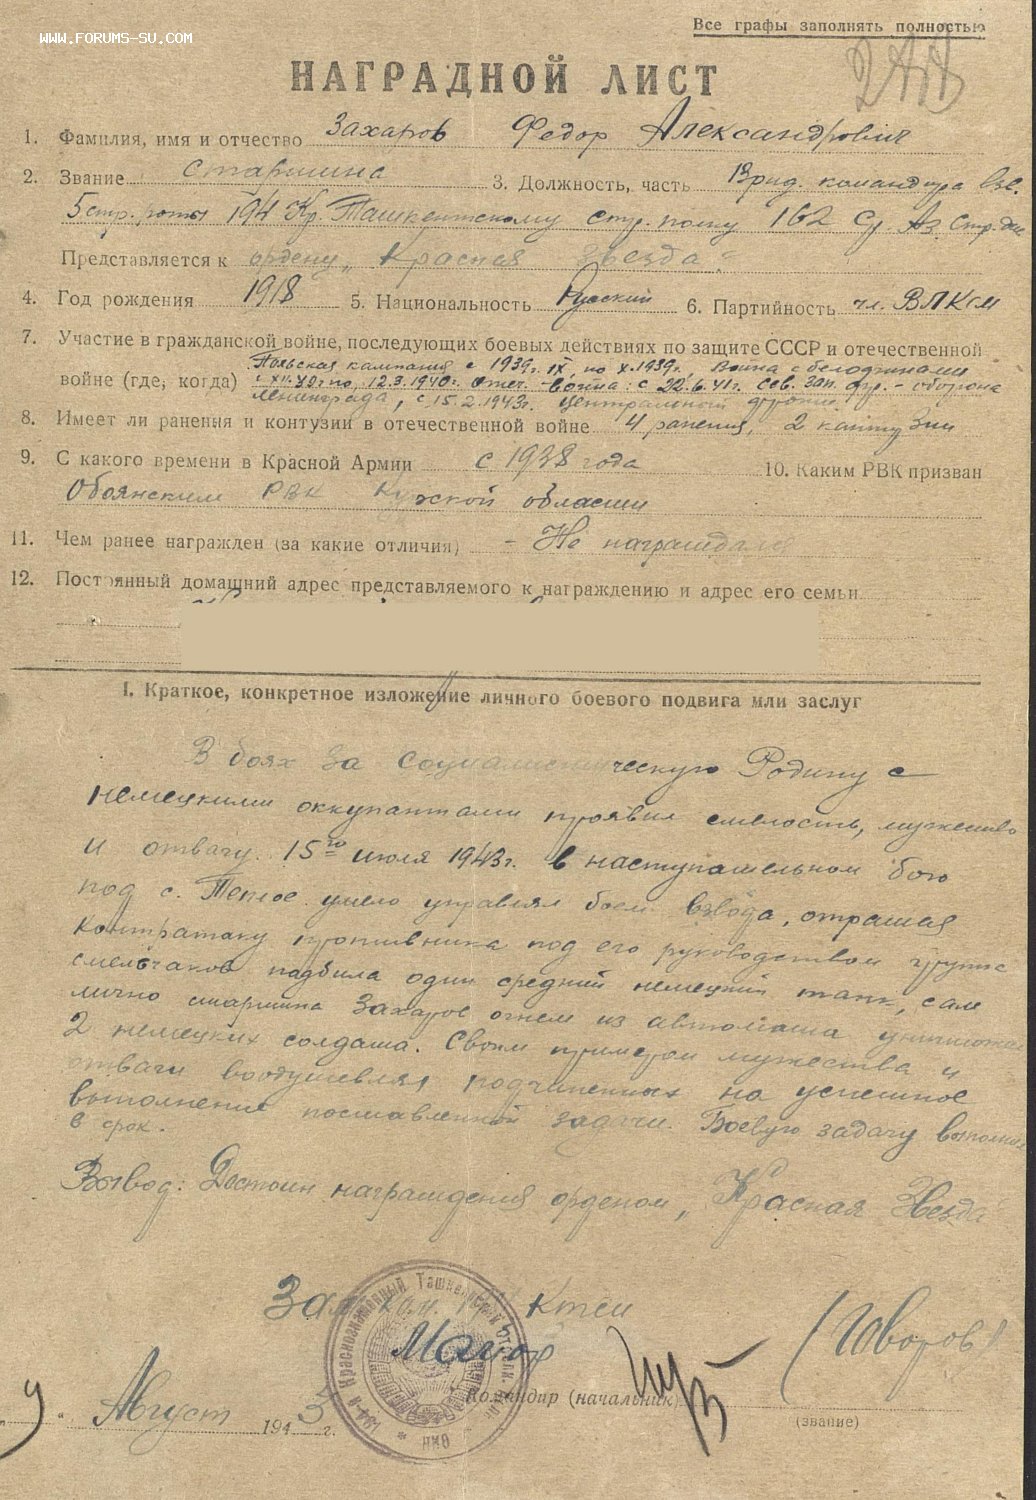 WWW.FORUMS-SU.COM
Все графы заполнять полностью
НАГРАДНОЙ ЛИСТ
1. Фамилия, имя и отчество Захаров Федор Александрович
2. Звание старшина 3. Должность, часть Врид. командира взв.
5 стр. роты 194 Кр. Ташкентскому стр. полку 162 Ср. Аз. Стр. див
Представляется к ордену „Красная звезда"
4. Год рождения 1918 5. Национальность Русский 6. Партийность чл. ВЛКСМ
7. Участие в гражданской войне, последующих боевых действиях по защите СССР и отечественной
Польская кампания с 1939г. IX, по X.1939г., Война с белофинами
войне (где, когда) по 12.3.1940г. Отеч. война: с 22.6.41г. Сев. Зап. фр. - оборона
Ленинграда, с 15.2.1943г. Центральный
8. Имеет ли ранения и контузии в отечественной войне 4 ранения, 2 контузии
9. С какого времени в Красной Армии с 1938 года 10. Каким РВК призван
Обоянским РВК Курской области
11. Чем ранее награжден (за какие отличия) - Не награждался
12. Постоянный домашний адрес представляемого к награждению и адрес его семьи
I. Краткое, конкретное изложение личного боевого подвига или заслуг
В боях за социалистическую Родину с
немецкими оккупантами проявил смелость, мужество
и отвагу. 15го июля 1943г. в наступательном бою
под с. Теплое умело управлял боем взвода, отражая
контратаку противника под его руководством группа
смельчаков подбила один средний немецкий танк, сам
лично старшина Захаров огнем из автомата уничтожил
2 немецких солдата. Своим примером мужества и
отваги воодушевлял подчиненных на успешное
выполнение поставленной задачи. Боевую задачу выполнил
в срок.
Вывод: Достоин награждения орденом „Красная Звезда
Зам ком.
Майор (Говоров)
194-й Краснознаменный Ташкентский
НКО
Командир (начальник)
(звание)
Август 1943 г.